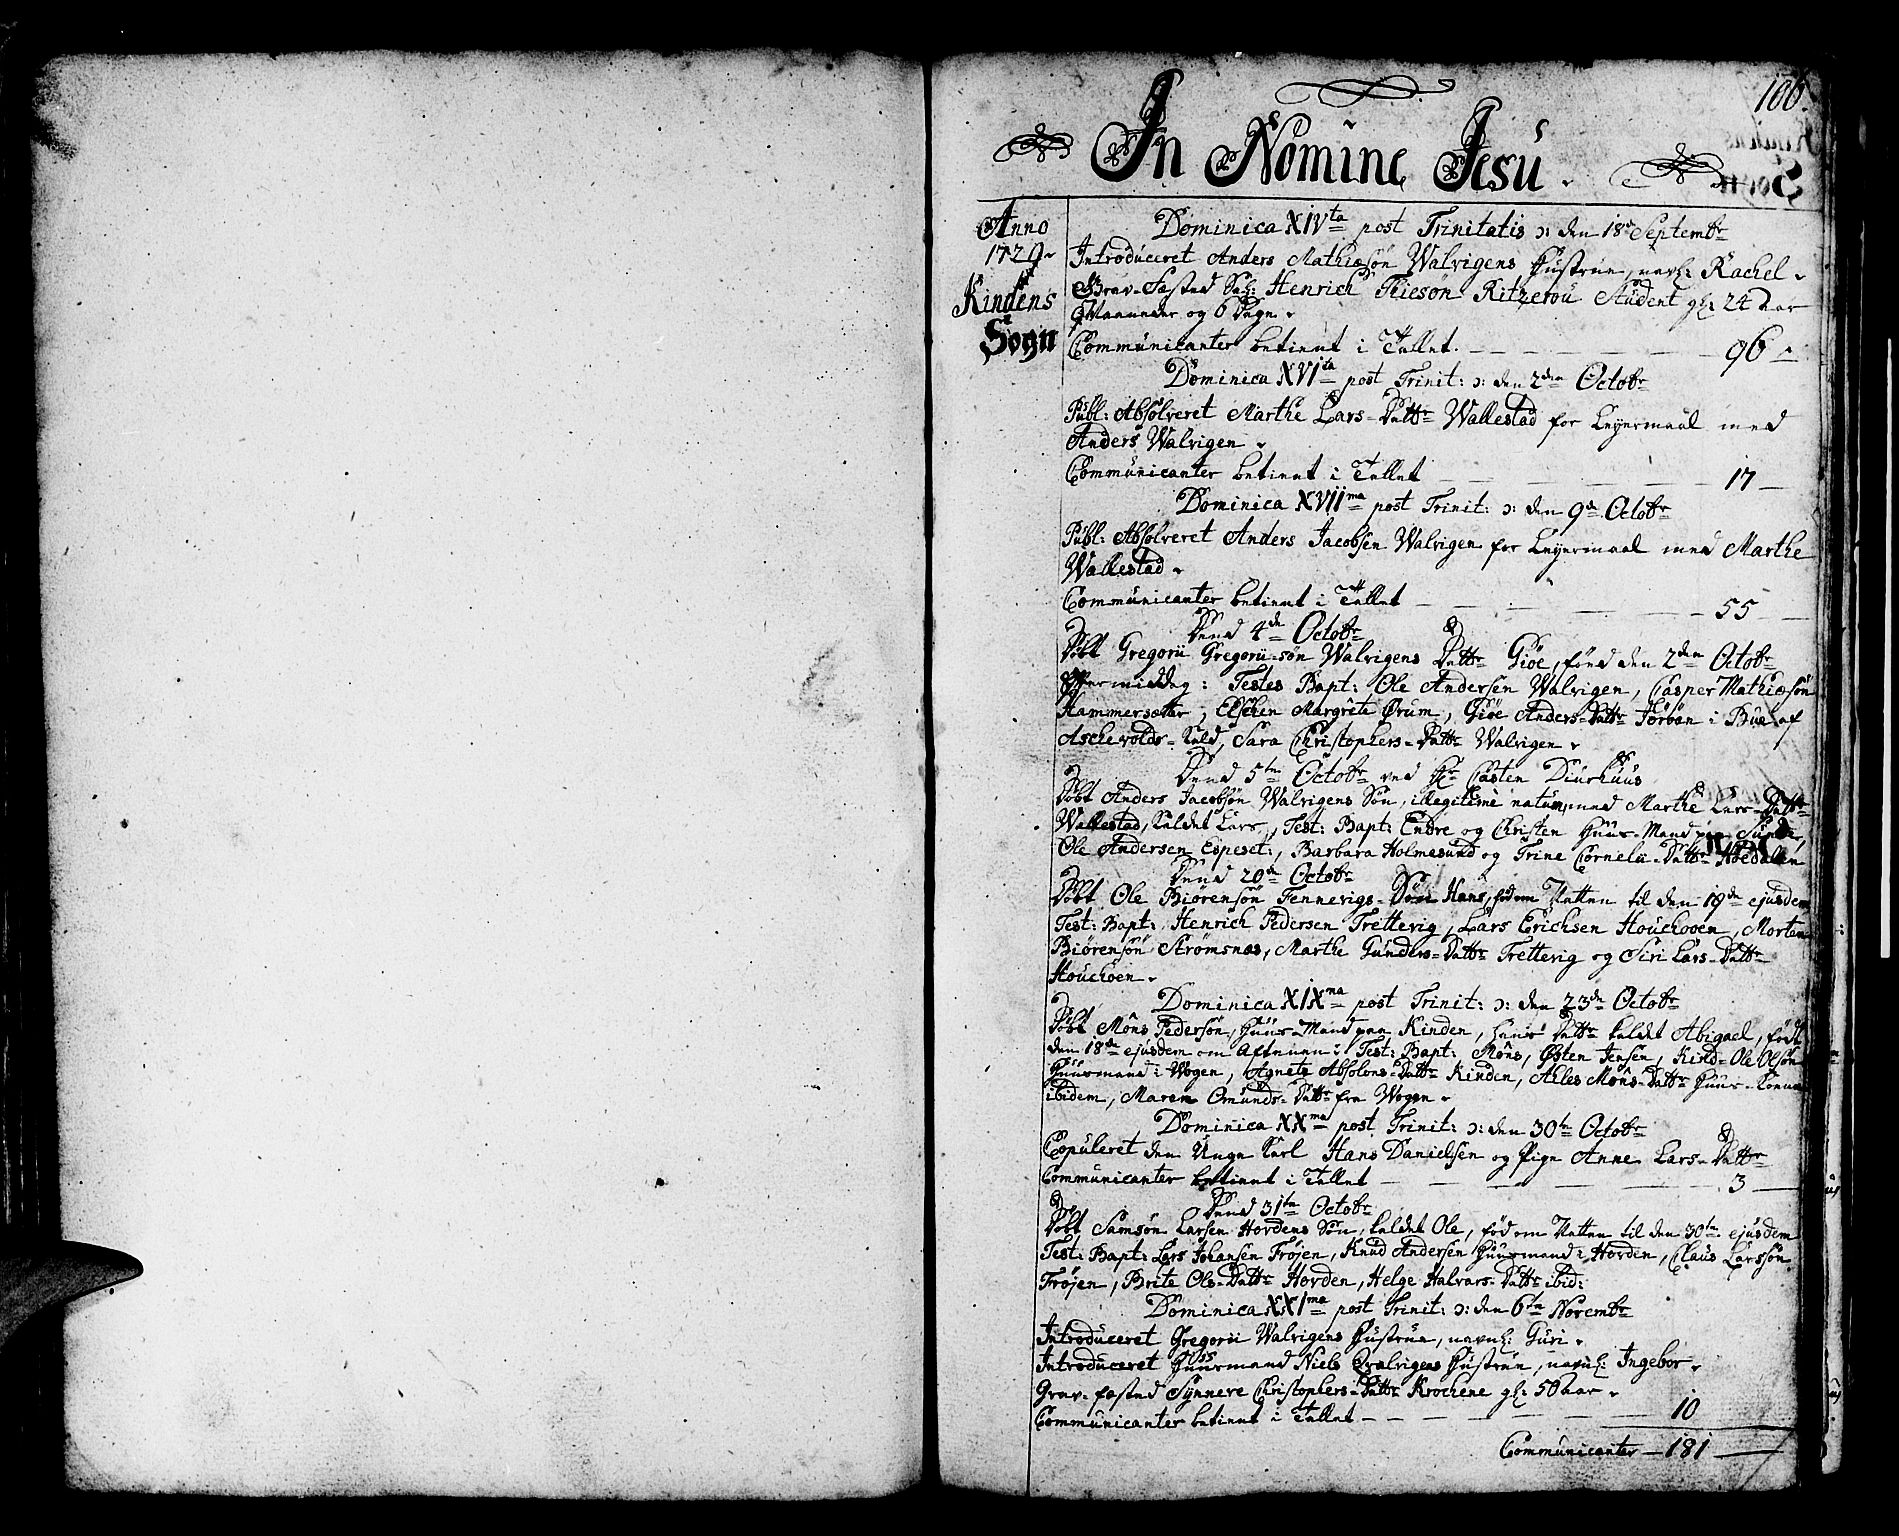 106.
In Nomine Jesu.
Anno
1729.
Kindens
Sogn
Dominica XIVta post Trinitatis ɔ: den 18de Septembr
Introduceret Anders Mathiæsøn Walvigens Hustrue, navnl: Rachel.
Grav-fæsted Sal: Henrich Thiesøn Ritzerou Student gl: 24 Aar
Maaneder og 6 Dage.
Communicanter betient i Tallet. 96
Dominica XVIta post Trinit: ɔ: den 2den Octobr
Publ: Absolveret Marthe Lars-Dattr Wallestad for Leyermaal med
Anders Walvigen.
Communicanter betient i Tallet 17
Dominica XVIIma post Trinit: ɔ: den 9de Octobr
Publ: Absolveret Anders Jacobsen Walvigen for Leyermaal med Marthe
Wallestad.
Communicanter betient i Tallet 55
Dend 4de Octobr
Døbt Gregorii Gregorii-søn Walvigens Dattr Giøe, fød den 2den Octobr
Eftermiddag: Testes Bapt: Ole Andersen Walvigen, Casper Mathiæsøn
Hammersætter, Elschen Margrete Ørum, Giøe Anders-Dattr i Bue af
Aschevolds-, Sara Christophers-Dattr Walvigen.
Dend 5te Octobr ved Hr Casten Diurhuus
Døbt Anders Jacobsøn Walvigens Søn, illegitime natum, med Marthe Lars-Dattr
Wallestad, kaldet Lars, Test: Bapt: Endre og Christen Huus-Mand paa
Ole Andersen Espeset:, Barbara Holmesund og Trine Cornelii-Dattr Hoedalen
Dend 20de Octobr
Døbt Ole Biørensøn Tennevigs-Søn Hans, fød om Natten til den 19de ejusdem
Test: Bapt: Henrich Pedersen Trettevig, Lars Erichsen Houchoven, Morten
Biørensøn Strømsnæs, Marthe Gunders-Dattr Trettevig og Siri Lars-Dattr
Houchoen.
Dominica XIXma post Trinit: ɔ: den 23de Octobr
Døbt Mons Pedersøn, Huus-Mand paa Kinden, hans Dattr kaldet Abigael, født
den 18de ejusdem om Aftenen: Test: Bapt: Mons, Østen Jensen, Kind- Ole Olsøn
Huusmand i Wogen, Agnete Absolons-Dattr Kinden, Ales Mons-Dattr Huus-Konen
ibidem, Maren Omunds-Dattr fra Wogen.
Dominica XXma post Trinit: ɔ: den 30te Octobr
Copuleret den Unge Karl Hans Danielsen og Pige Anne Lars-Dattr
Communicanter betient i Tallet 3
Dend 31te Octobr
Døbt Samson Larsen Hordens Søn, kaldet Ole, fød om Natten til den 30te ejusdem
Test: Bapt: Lars Johansen Frøjen, Knud Andersen Huusmand i Horden, Claus Larssøn
Frøjen, Brite Ols-Dattr Horden, Helge Halvars-Dattr ibid:
Dominica XXIma post Trinit: ɔ: den 6te Novembr
Introduceret Gregorii Walvigens Hustrue, navnl: Guri.
Introduceret Huusmand Niels Qvalvigens Hustrue, navnl: Ingebor.
Grav-fæsted Synnere Christophers-Dattr Krochene gl: 50 Aar.
Communicanter betient i Tallet 10
Communicanter 181